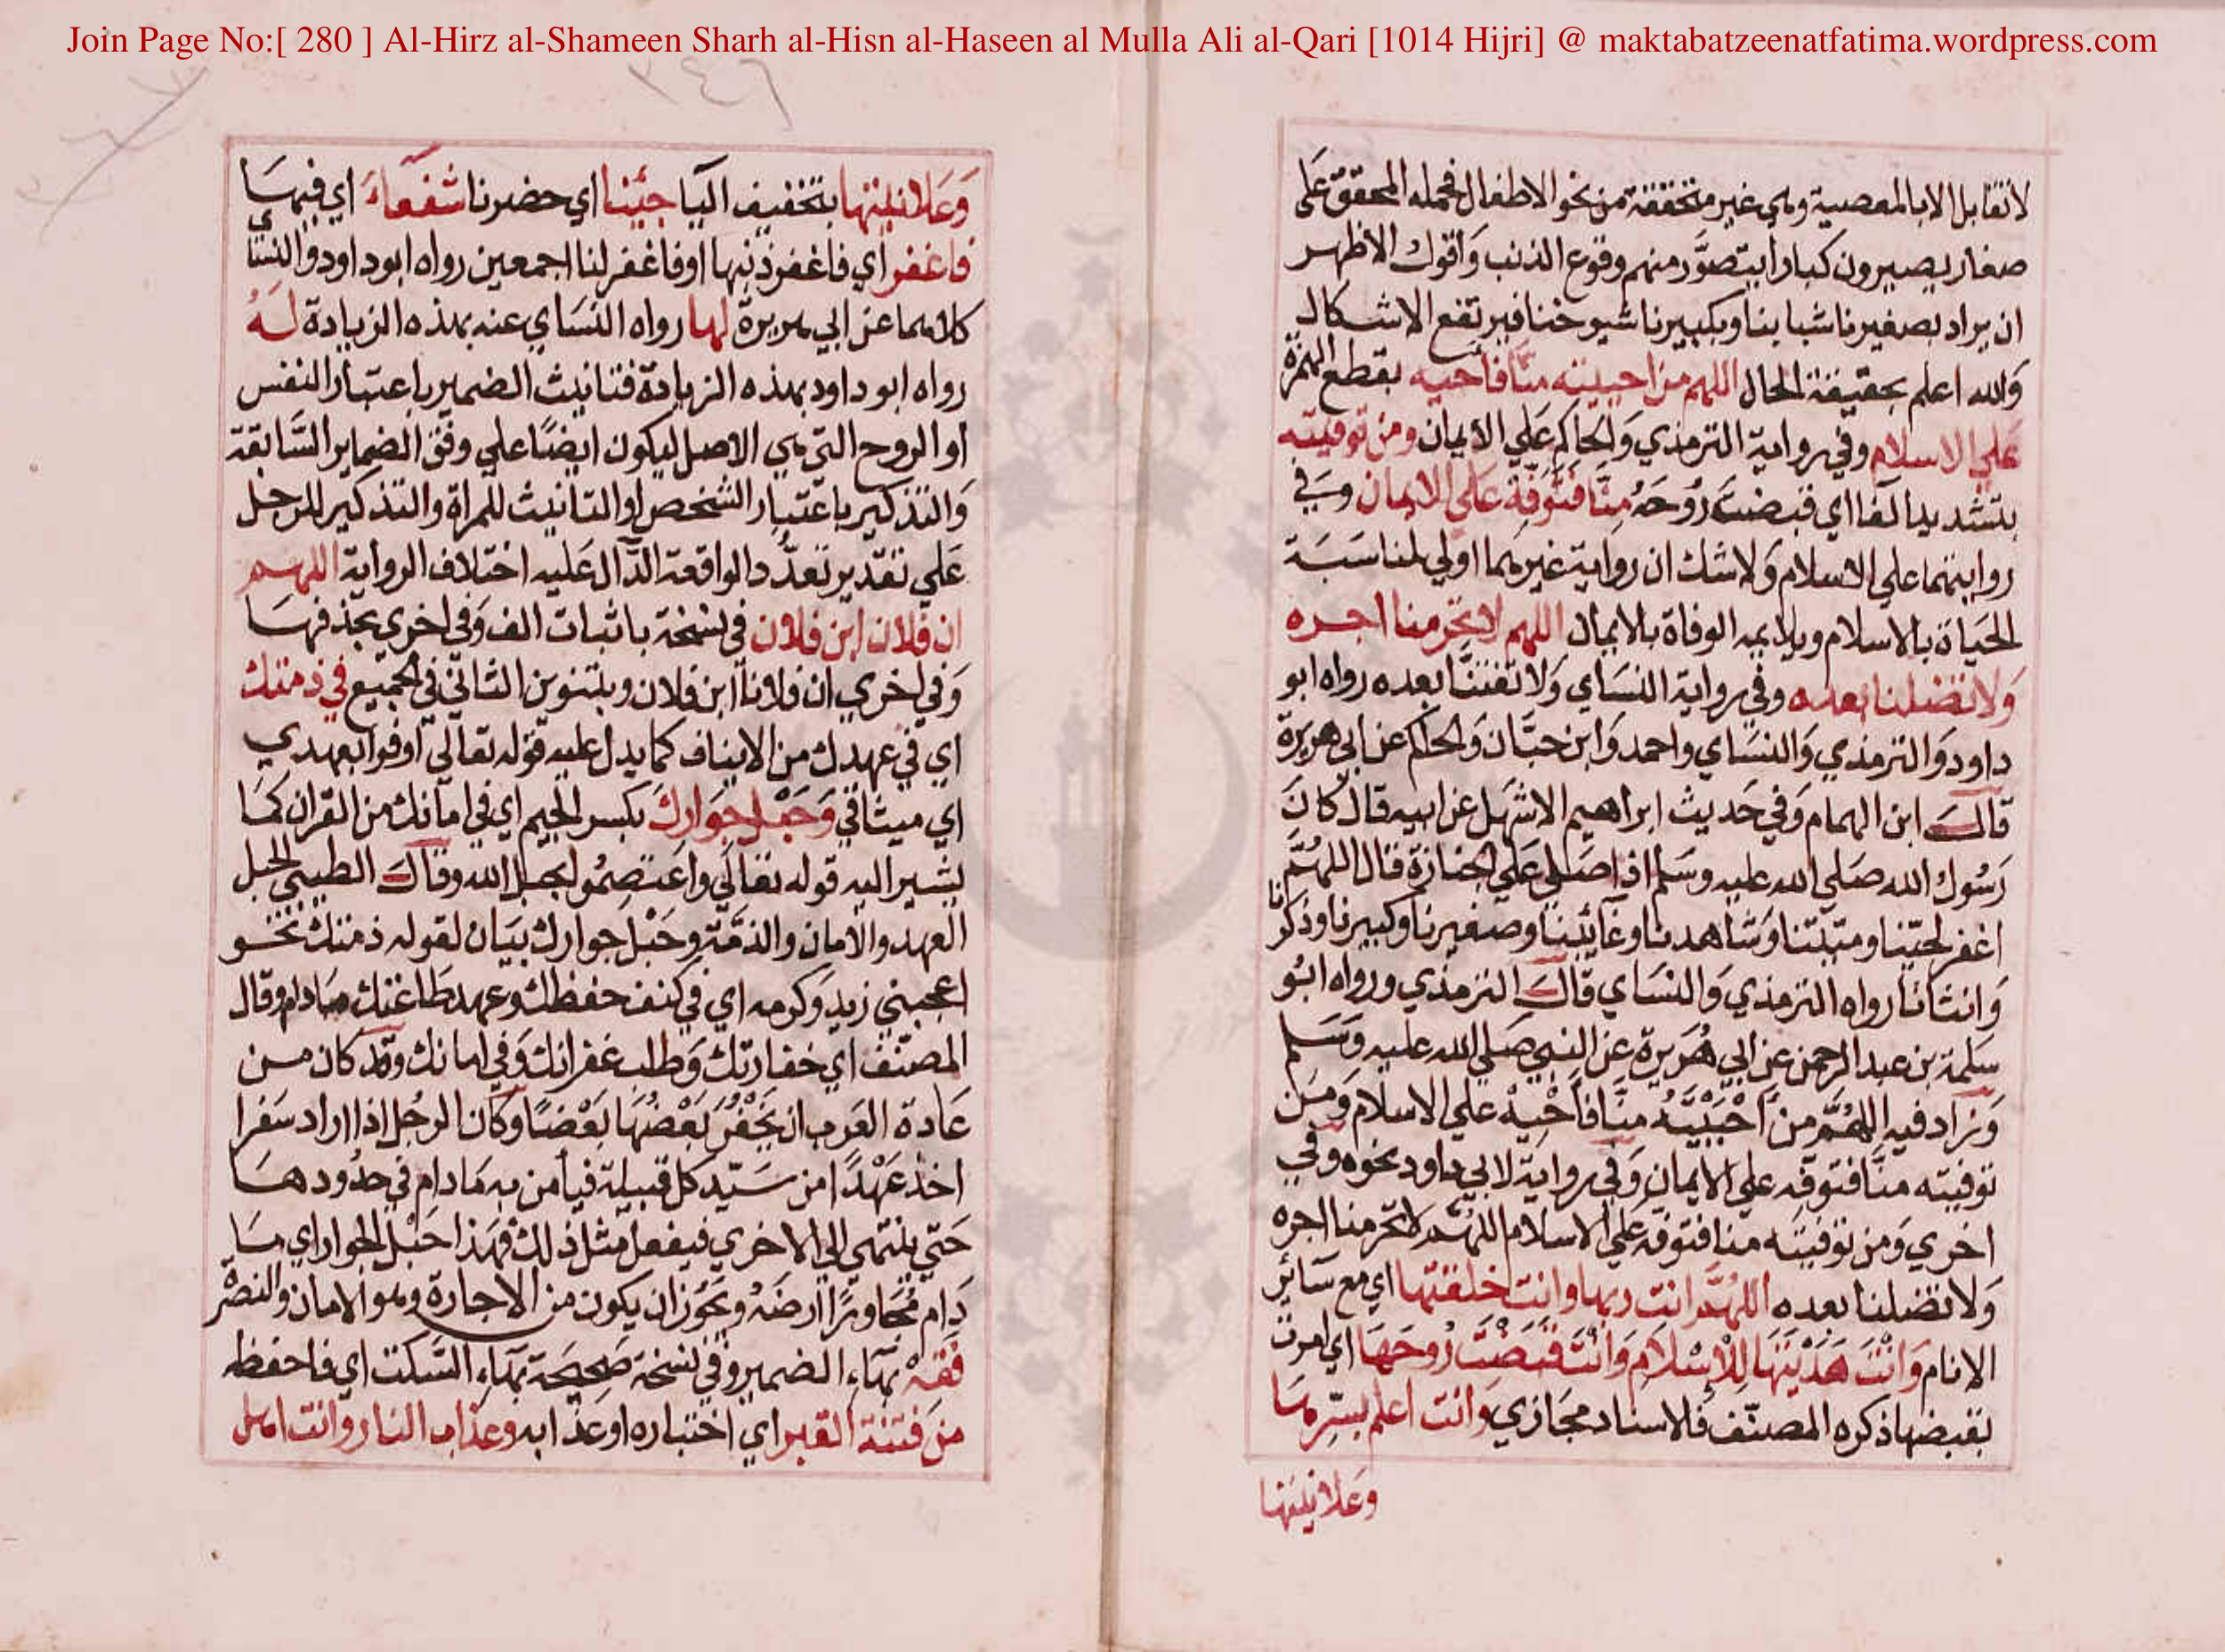 Join Page No:[ 280 ] Al-Hirz al-Shameen Sharh al-Hisn al-Haseen al Mulla Ali al-Qari [1014 Hijri] @ maktabatzeenatfatima.wordpress.com
لا تقابل الا بالمعصية وهي غير متحققة من نحو الاطفال فحمله المحقق على
صغار يصيرون كبارا يتصوَّر منهم وقوع الذنب وَاقول الاظهر
ان يراد بصغيرنا شبابنا وبكبيرنا شيوخنا فيرتفع الاشكال
وَالله اعلم بحقيقة الحال اللهم من احييته منّا فاحيه بقطع الهمزة
عَلي الاسلام وفي رواية الترمذي وَالحاكم عَلي الايمان ومن توفيته
بتشديد الفا اي قبضت رُوحَهُ مِنَّا فَتَوَفَّهُ عَلى الايمان وَفي
روايتهما علي الاسلام وَلا شك ان رواية غيرهما اولي لمناسَبَة
الحَياة بالاسلام ويلايمه الوفاة بالايمان اللهم لا تحرمنا اجره
وَلا تضلنا بعده وفي رواية النسَاي وَلا تفتنَّا بعده رواه ابو
داود وَالترمذي وَالنسَاي واحمد وَابن حبَّان وَالحاكم عن ابي هريرة
قالَ ابن الهمام وَفي حَديث ابراهيم الاشهل عن ابيه قال كانَ
رَسُول الله صَلي الله عليه وسَلم اذا صَلي عَلي الجنازة قال اللهُمَّ
اغفر لحيّنا وميّتنا وَشاهدنا وغَائبنا وصغيرنا وكبيرنا وذكرنا
وَانثانا رواه الترمذي وَالنسَاي قالَ الترمذي ورواه ابُو
سَلمة بن عبد الرحمن عن ابي هُرَيرة عن النبي صَلي الله عليه وَسَلم
وَزاد فيه اللهُمَّ مَن اَحْيَيْتَهُ منَّا فَاَحْيِهْ علي الاسلام وَمَن
توفيته منَّا فتوفه علي الايمان وَفي رواية لابي داود نحوه وفي
اخري وَمن توفيته منا فتوفه عَلي الاسلام اللهُمَّ لا تحرمنا اجره
وَلا تضلنا بعده اللهُمَّ انت ربها وانت خلقتها اي مع سَائر
الانام وَاَنْتَ هَدَيْتَهَا لِلْاِسْلَامِ وَاَنْتَ قَبَضْتَ رُوحَهَا اي امرت
بقبضها ذكره المصنّف فالاسناد مجَازي وَانت اعلم بسِرِّهَا
وَعَلانيتها
وَعَلانيتها بتخفيف اليا جئنا اي حضرنا شفعاءَ اي فيهَا
فاغفر اي فاغفر ذنبها او فاغفر لنا اجمعين رواه ابو داود وَالنسَاي
كلاهما عن ابي هريرة لها رواه النسَاي عنه بهذه الزيادة لَهُ
رواه ابو داود بهذه الزيادة فتانيث الضمير باعتبار النفس
او الروح التي هي الاصل ليكون ايضًا علي وفق الضماير السَّابقة
وَالتذكير باعتبار الشخص او التانيث للمراة والتذكير للرجل
عَلي تقدير تعدُّد الواقعة الدَّال عَليه اختلاف الرواية اللهم
ان فلان ابن فلان في نسخة باثبات الف وَفي اخري بحذفهَا
وَفي اخري ان فلاناً ابن فلان وبتنوين الثاني في الجميع في ذمتك
اي في عهدك من الايفاف كما يدل عليه قوله تعَالي اَوفوا بعهدي
اي ميثاقي وَحَبْل جوَارِكَ بكسر الجيم اي في امانك من القران كمَا
يشير اليه قوله تعَالَي واعتصِمُوا بحبل الله وقالَ الطيبي الحبل
العهد والامان والذمَّة وَحَبْل جوارك بيَان لقوله ذمتك نحو
اعجبني زيد وَكرمه اي في كنف حفظك وعهد طَاعتك مَادام وقال
المصنّف اي خفارتك وَطلب غفرانك وَفي امانك وقد كان من
عَادة العَرب ان يَخْفُرَ بَعْضُهَا بَعْضًا وَكان الرجُل اذا اراد سَفرا
اخذ عَهْدًا من سَيّد كل قبيلة فيأمن به مَا دام في حدُودهَا
حَتي ينتهي الي الاخري فيفعل مثل ذلك فهَذا حَبْل الجوار اي مَا
دَام مُجَاورًا ارضَهُ ويَجُوز ان يكون من الاجارة وهو الامان والنصْر
فَقِهْ بهَاء الضمير وفي نسخة صَحِيحَة بهَاء السَّكت اي فاحفظه
من فتنة القبر اي اختباره او عذابه وعذاب النار وانت اهل